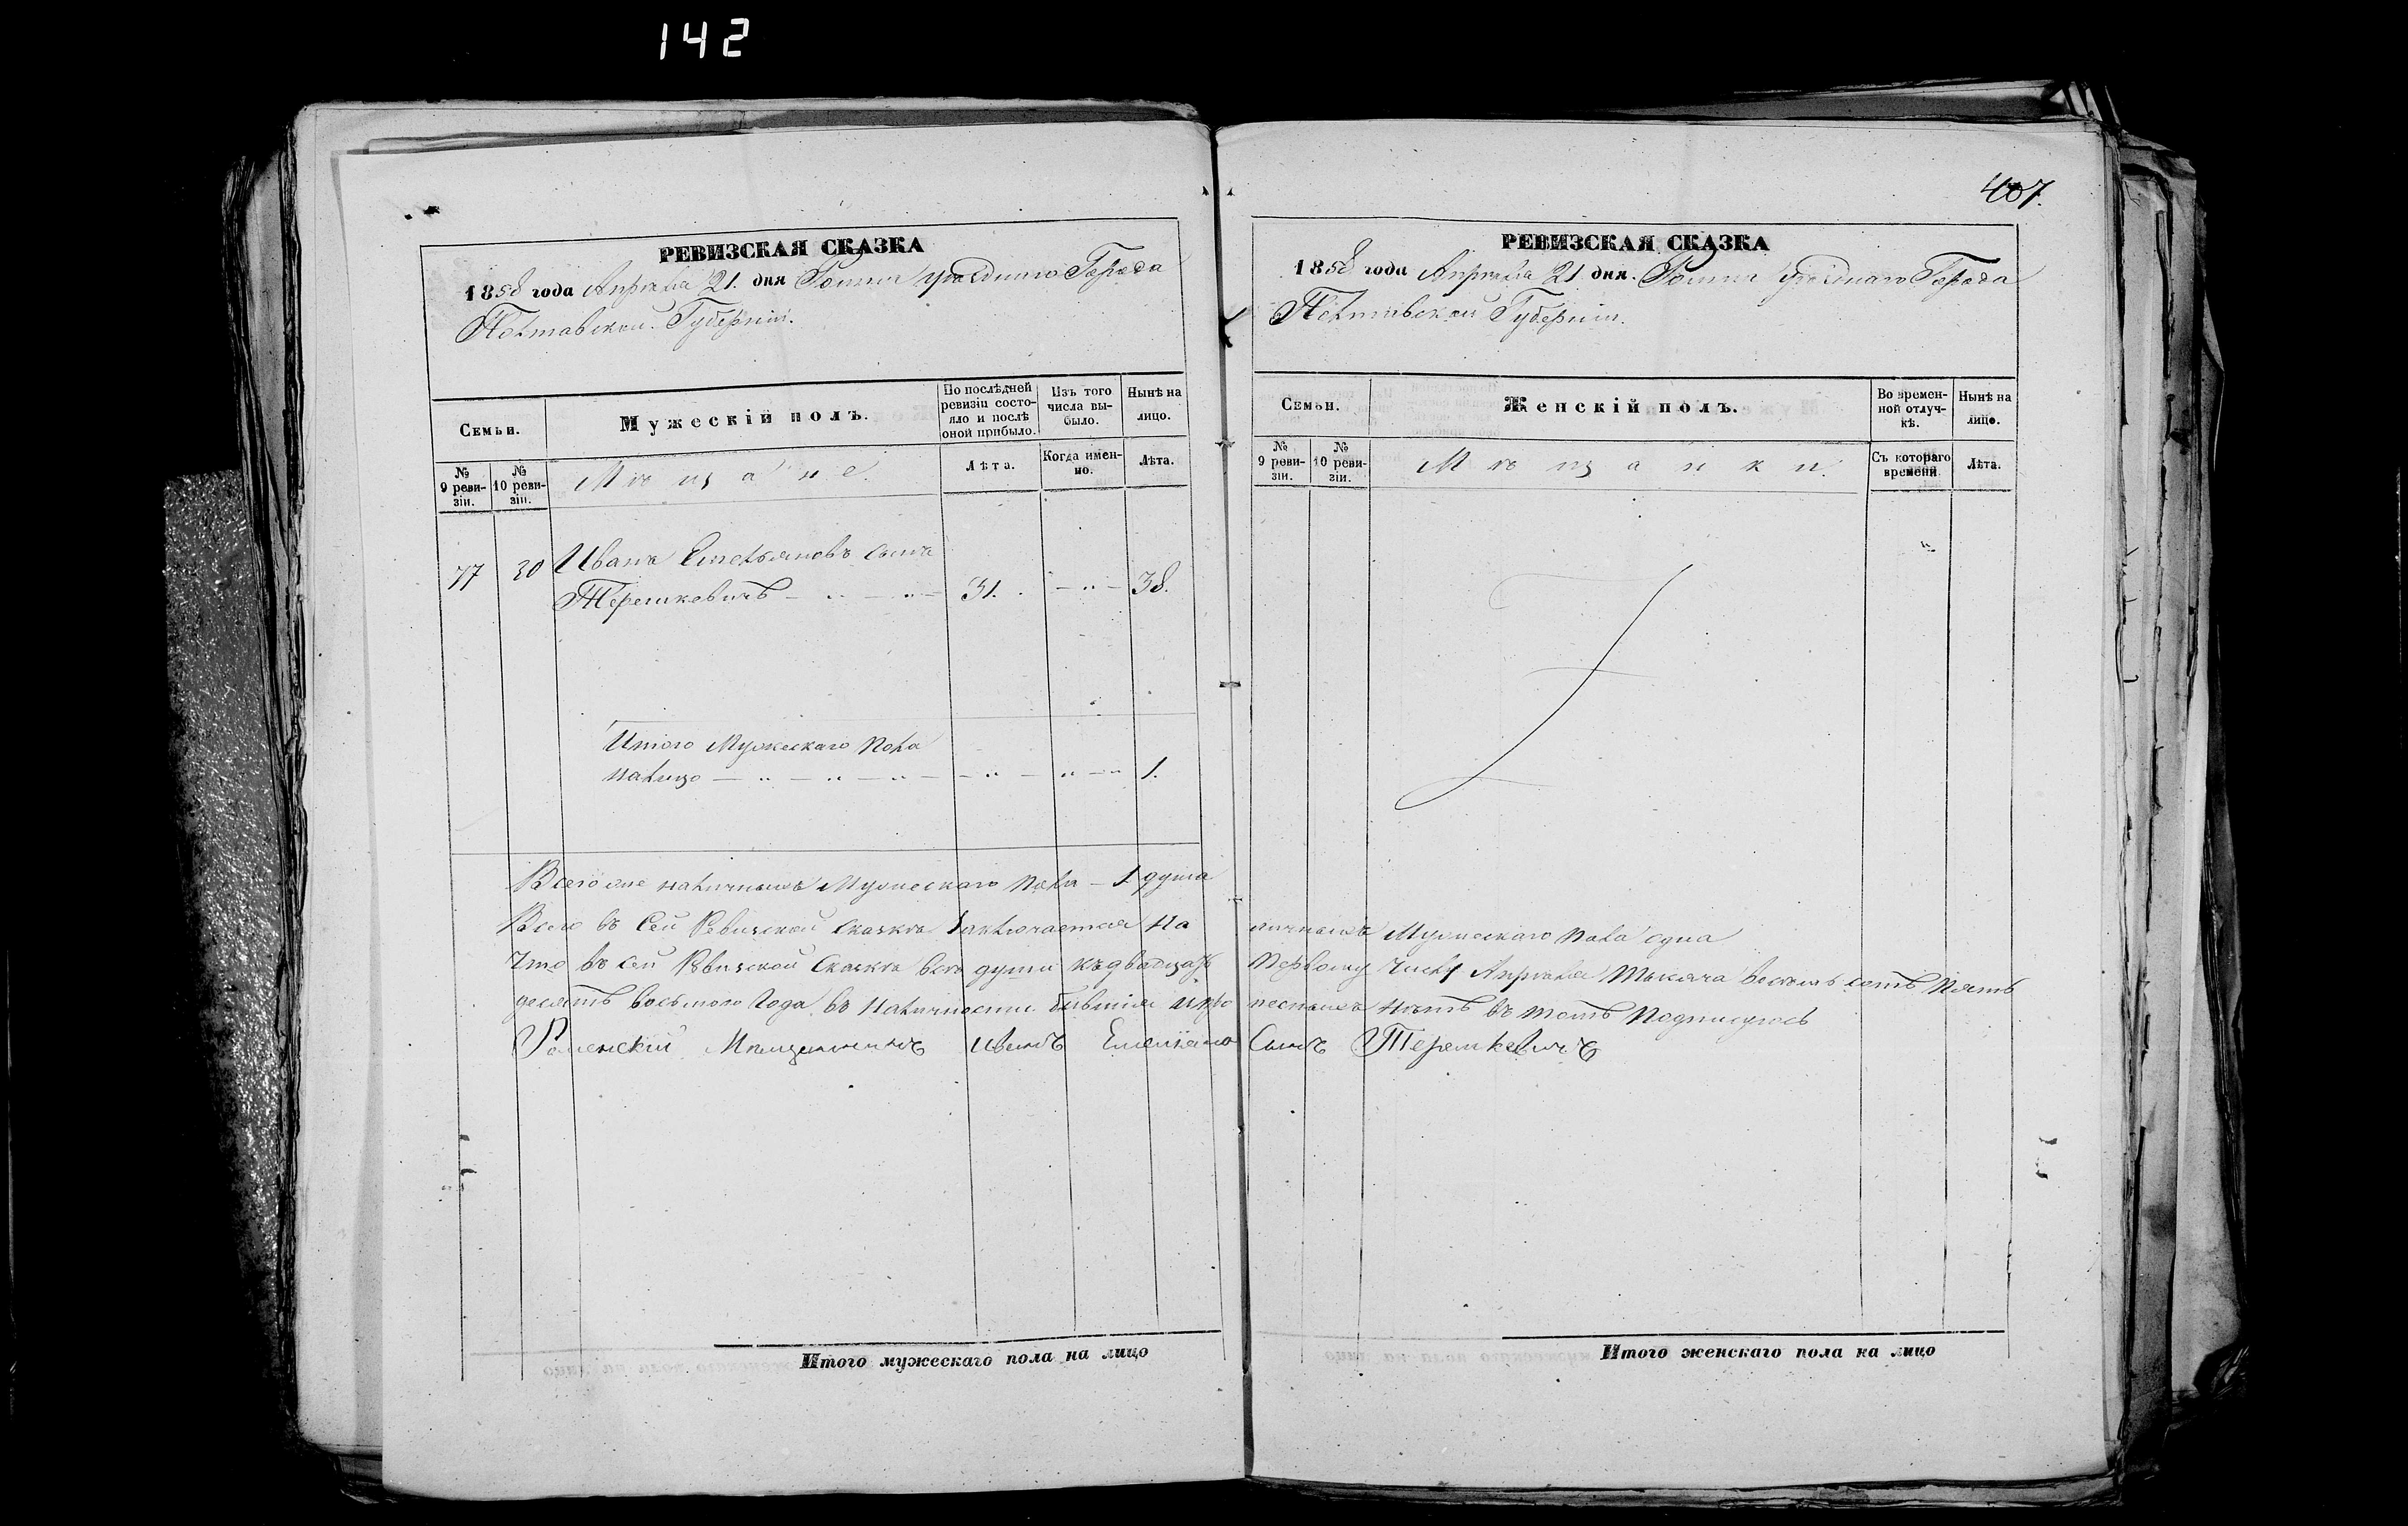 142
407.
РЕВИЗСКАЯ СКАЗКА
1858 года Апрѣля 21. дня Ромна уѣзднаго Города
Полтавской Губерніи.
Семьи.
Мужескій полъ.
По послѣдней ревизіи состояло и послѣ оной прибыло.
Изъ того числа выбыло.
Нынѣ на лицо.
№ 9 ревизіи.
№ 10 ревизіи.
Мѣщане.
Лѣта.
Когда именно.
Лѣта.
77 30 Иванъ Емельяновъ сынъ
Терешкевичъ 31. 38.
Итого Мужескаго пола
налицо 1.
Всего же наличныхъ Мужескаго пола – 1 душа
РЕВИЗСКАЯ СКАЗКА
1858 года Апрѣля 21. дня. Ромна уѣзднаго Города
Полтавской Губерніи.
Семьи.
Женскій полъ.
Во временной отлучкѣ.
Нынѣ на лицо.
№ 9 ревизіи.
№ 10 ревизіи.
Мѣщанки.
Съ котораго времени.
Лѣта.
Всего въ сей Ревизской Сказкѣ заключается на личныхъ Мужескаго пола одна
Что въ сей Ревизской Сказкѣ всѣ души къ двадцать Первому числу Апрѣля тысяча восемь сотъ пять
десятъ восьмого года въ наличности бывшія и про писныхъ нѣтъ въ томъ Подписуюсь
Роменскій Мѣщанинъ Иванъ Сынъ Терешкевичъ
Итого мужескаго пола на лицо
Итого женскаго пола на лицо